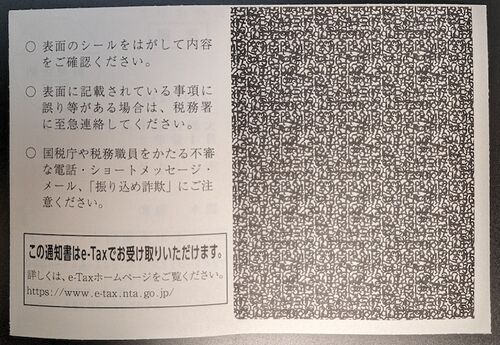 ○ 表面のシールをはがして内容
をご確認ください。
○ 表面に記載されている事項に
誤り等がある場合は、税務署
に至急連絡してください。
○ 国税庁や税務職員をかたる不審
な電話・ショートメッセージ・
メール、「振り込め詐欺」にご注
意ください。
この通知書はe-Taxでお受け取りいただけます。
詳しくは、e-Taxホームページをご覧ください。
https://www.e-tax.nta.go.jp/